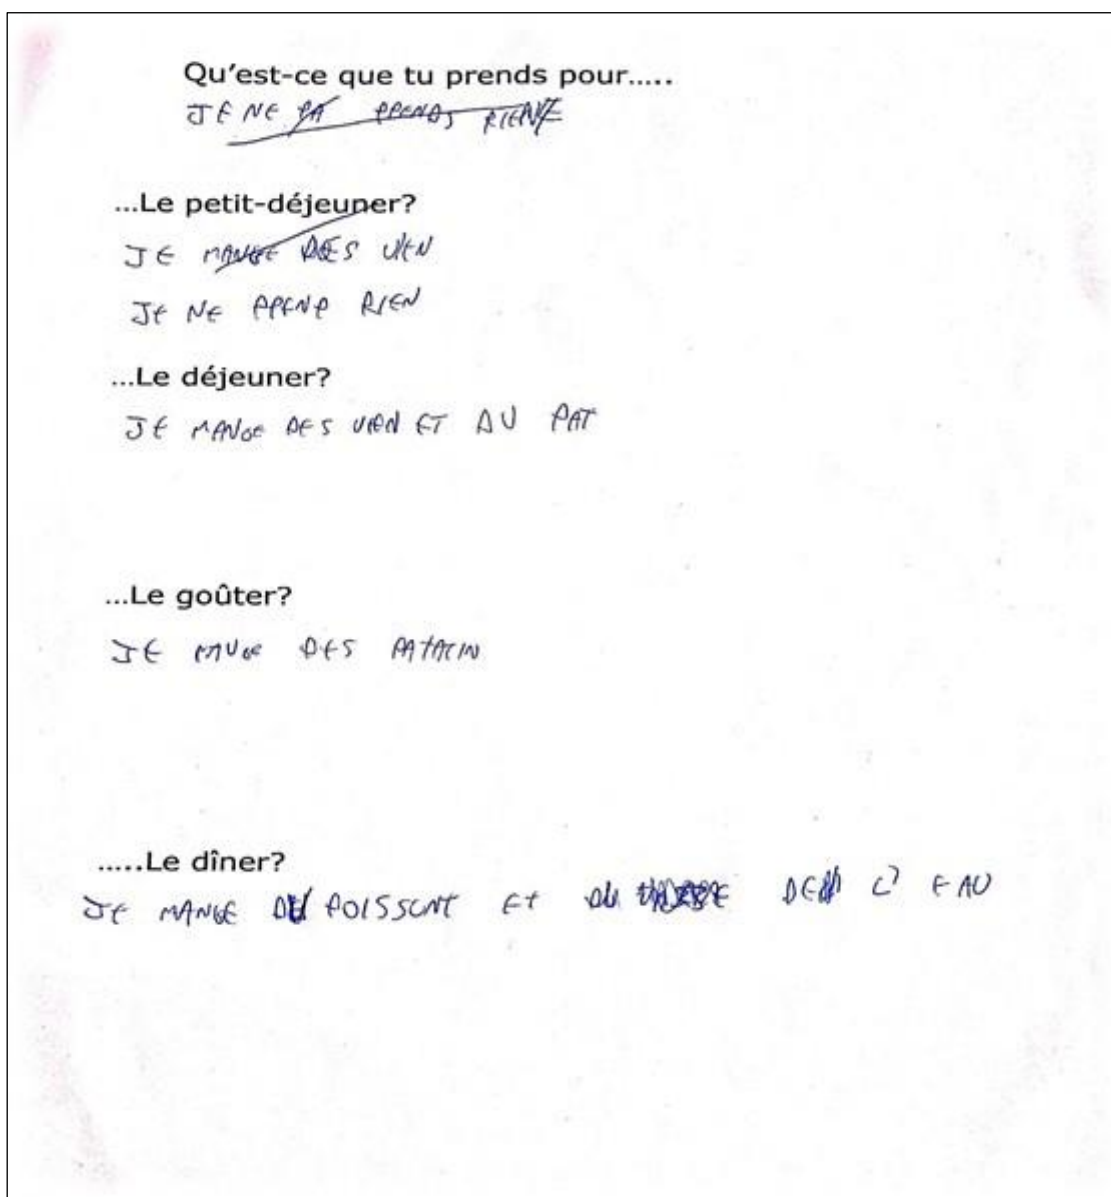 Qu'est-ce que tu prends pour.....
JE NE PA PRENDS RIEN
...Le petit-déjeuner?
JE MANGE DES VIEN
JE NE PREND RIEN
...Le déjeuner?
JE MANGE DES VIEN ET DU PAT
...Le goûter?
JE MANGE DES
.....Le dîner?
JE MANGE DU POISSONT ET DU DE L'EAU